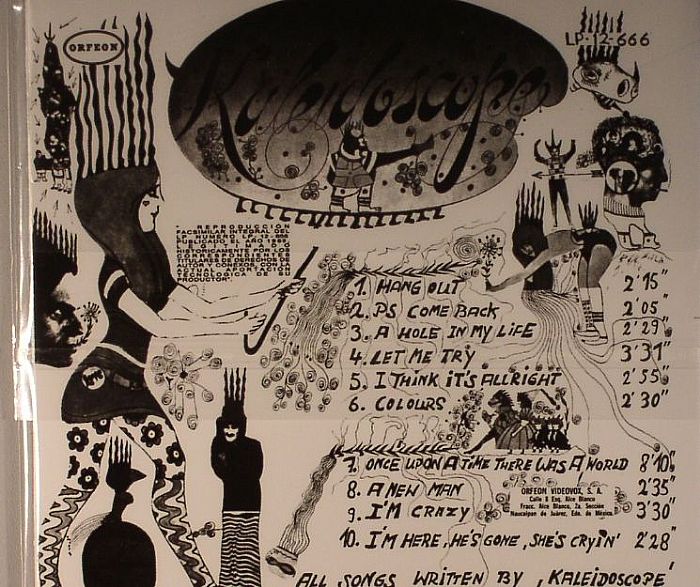 ORFEON
LP-12-666
Kaleidoscope
REPRODUCCION
FACSIMILAR INTEGRAL DEL
PUBLICADO EL AÑO
LEGITIMADO
HISTORICAMENTE POR LOS
CORRESPONDIENTES
TITULARES DERECHOS
AUTOR Y CONEXOS, CON LA
ACTUAL APORTACION
TECNOLOGICA DE SU
PRODUCTOR".
1. HANG OUT 2'15"
2. PS COME BACK 2'05"
3. A HOLE IN MY LIFE 2'29"
4. LET ME TRY 3'31"
5. I THINK IT'S ALLRIGHT 2'55"
6. COLOURS 2'30"
7. ONCE UPON A TIME THERE WAS A WORLD 8'10"
8. A NEW MAN 2'35"
9. I'M CRAZY 3'30"
10. I'M HERE, HE'S GONE, SHE'S CRYIN' 2'28"
ORFEON VIDEOVOX, S. A.
Calle 8 Esq. Alce Blanco
Fracc. Alce Blanco, 2a. Sección
Naucalpan de Juárez, Edo. de México
ALL SONGS WRITTEN BY KALEIDOSCOPE'